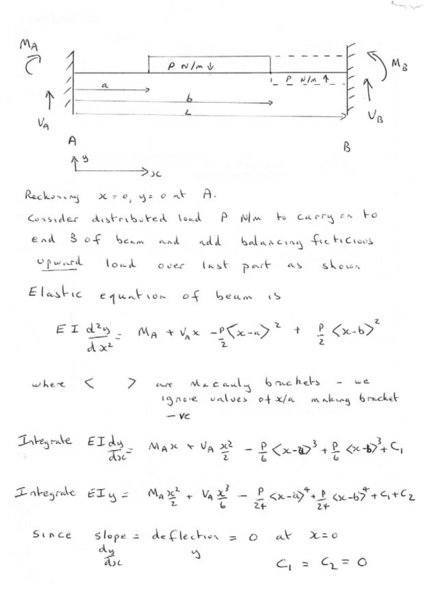 M_A
P N/m ↓
P N/m ↑
M_B
a
b
V_A
L
V_B
A
B
y
x
Reckoning x=0, y=0 at A.
Consider distributed load P N/m to carry on to
end B of beam and add balancing ficticious
upward load over last part as shown
Elastic equation of beam is
EI d²y/dx² = M_A + V_A x - P/2 <x-a>² + P/2 <x-b>²
where < > are Macauly brackets - we
ignore values of x/a making bracket
-ve
Integrate EI dy/dx = M_A x + V_A x²/2 - P/6 <x-a>³ + P/6 <x-b>³ + C₁
Integrate EIy = M_A x²/2 + V_A x³/6 - P/24 <x-a>⁴ + P/24 <x-b>⁴ + C₁ + C₂
Since slope = deflection = 0 at x=0
dy/dx y
C₁ = C₂ = 0